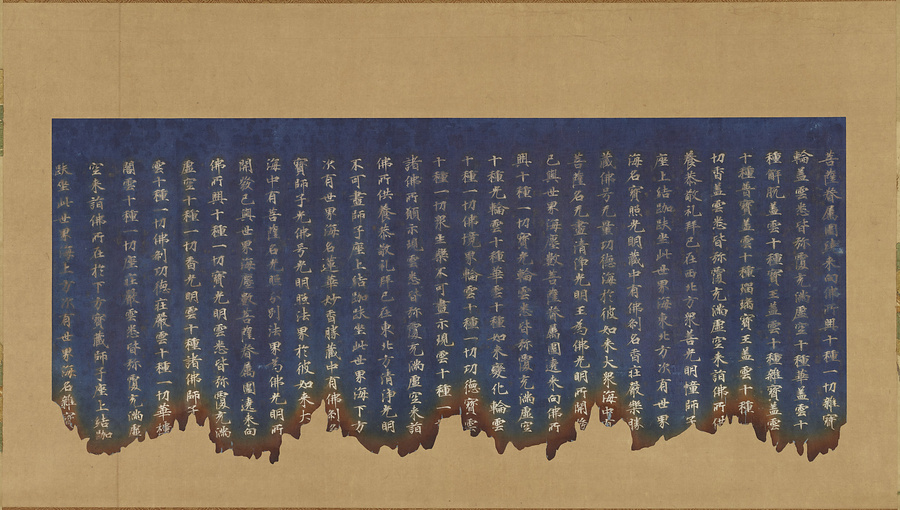 菩薩眷屬圍遶來向佛所興十種一切雜寶
輪蓋雲悉皆弥覆充滿虛空十種華蓋雲十
種解脫蓋雲十種寶王蓋雲十種雜寶蓋雲
十種普寶蓋雲十種瑠璃寶王蓋雲十種
切香蓋雲悉皆弥覆充滿虛空來詣佛所供
養恭敬礼拜已在西北方衆善光明幢師子
座上結跏趺坐此世界海東北方次有世界
海名寶照光明藏中有佛刹名香莊嚴樂勝
藏佛号无量功德海於彼如來大衆海中有
菩薩名无盡清淨光明王爲佛光明所開
已與世界海塵數菩薩眷屬圍遶來向佛所
興十種一切寶光輪雲悉皆弥覆充滿虛空
十種光輪雲十種華雲十種如來變化輪雲
十種一切佛境界輪雲十種一切功德寶雲
十種一切衆生樂不可盡示現雲十種一
諸佛所願示現雲悉皆弥覆充滿虛空來詣
佛所供養恭敬礼拜已在東北方清淨光明
不可盡師子座上結跏趺坐此世界海下方
次有世界海名蓮華妙香勝藏中有佛刹名
寶師子光佛号光明照法界於彼如來大
海中有菩薩名光照分別法界爲佛光明所
開發已與世界海塵數菩薩眷屬圍遶來向
佛所興十種一切寶光明雲悉皆弥覆充滿
虛空十種一切香光明雲十種諸佛師子
雲十種一切佛刹功德莊嚴雲十種一切華樓
閣雲十種一切座莊嚴雲悉皆弥覆充滿虛
空來詣佛所在於下方寶藏師子座上結跏
趺坐此世界海上方次有世界海名雜寶